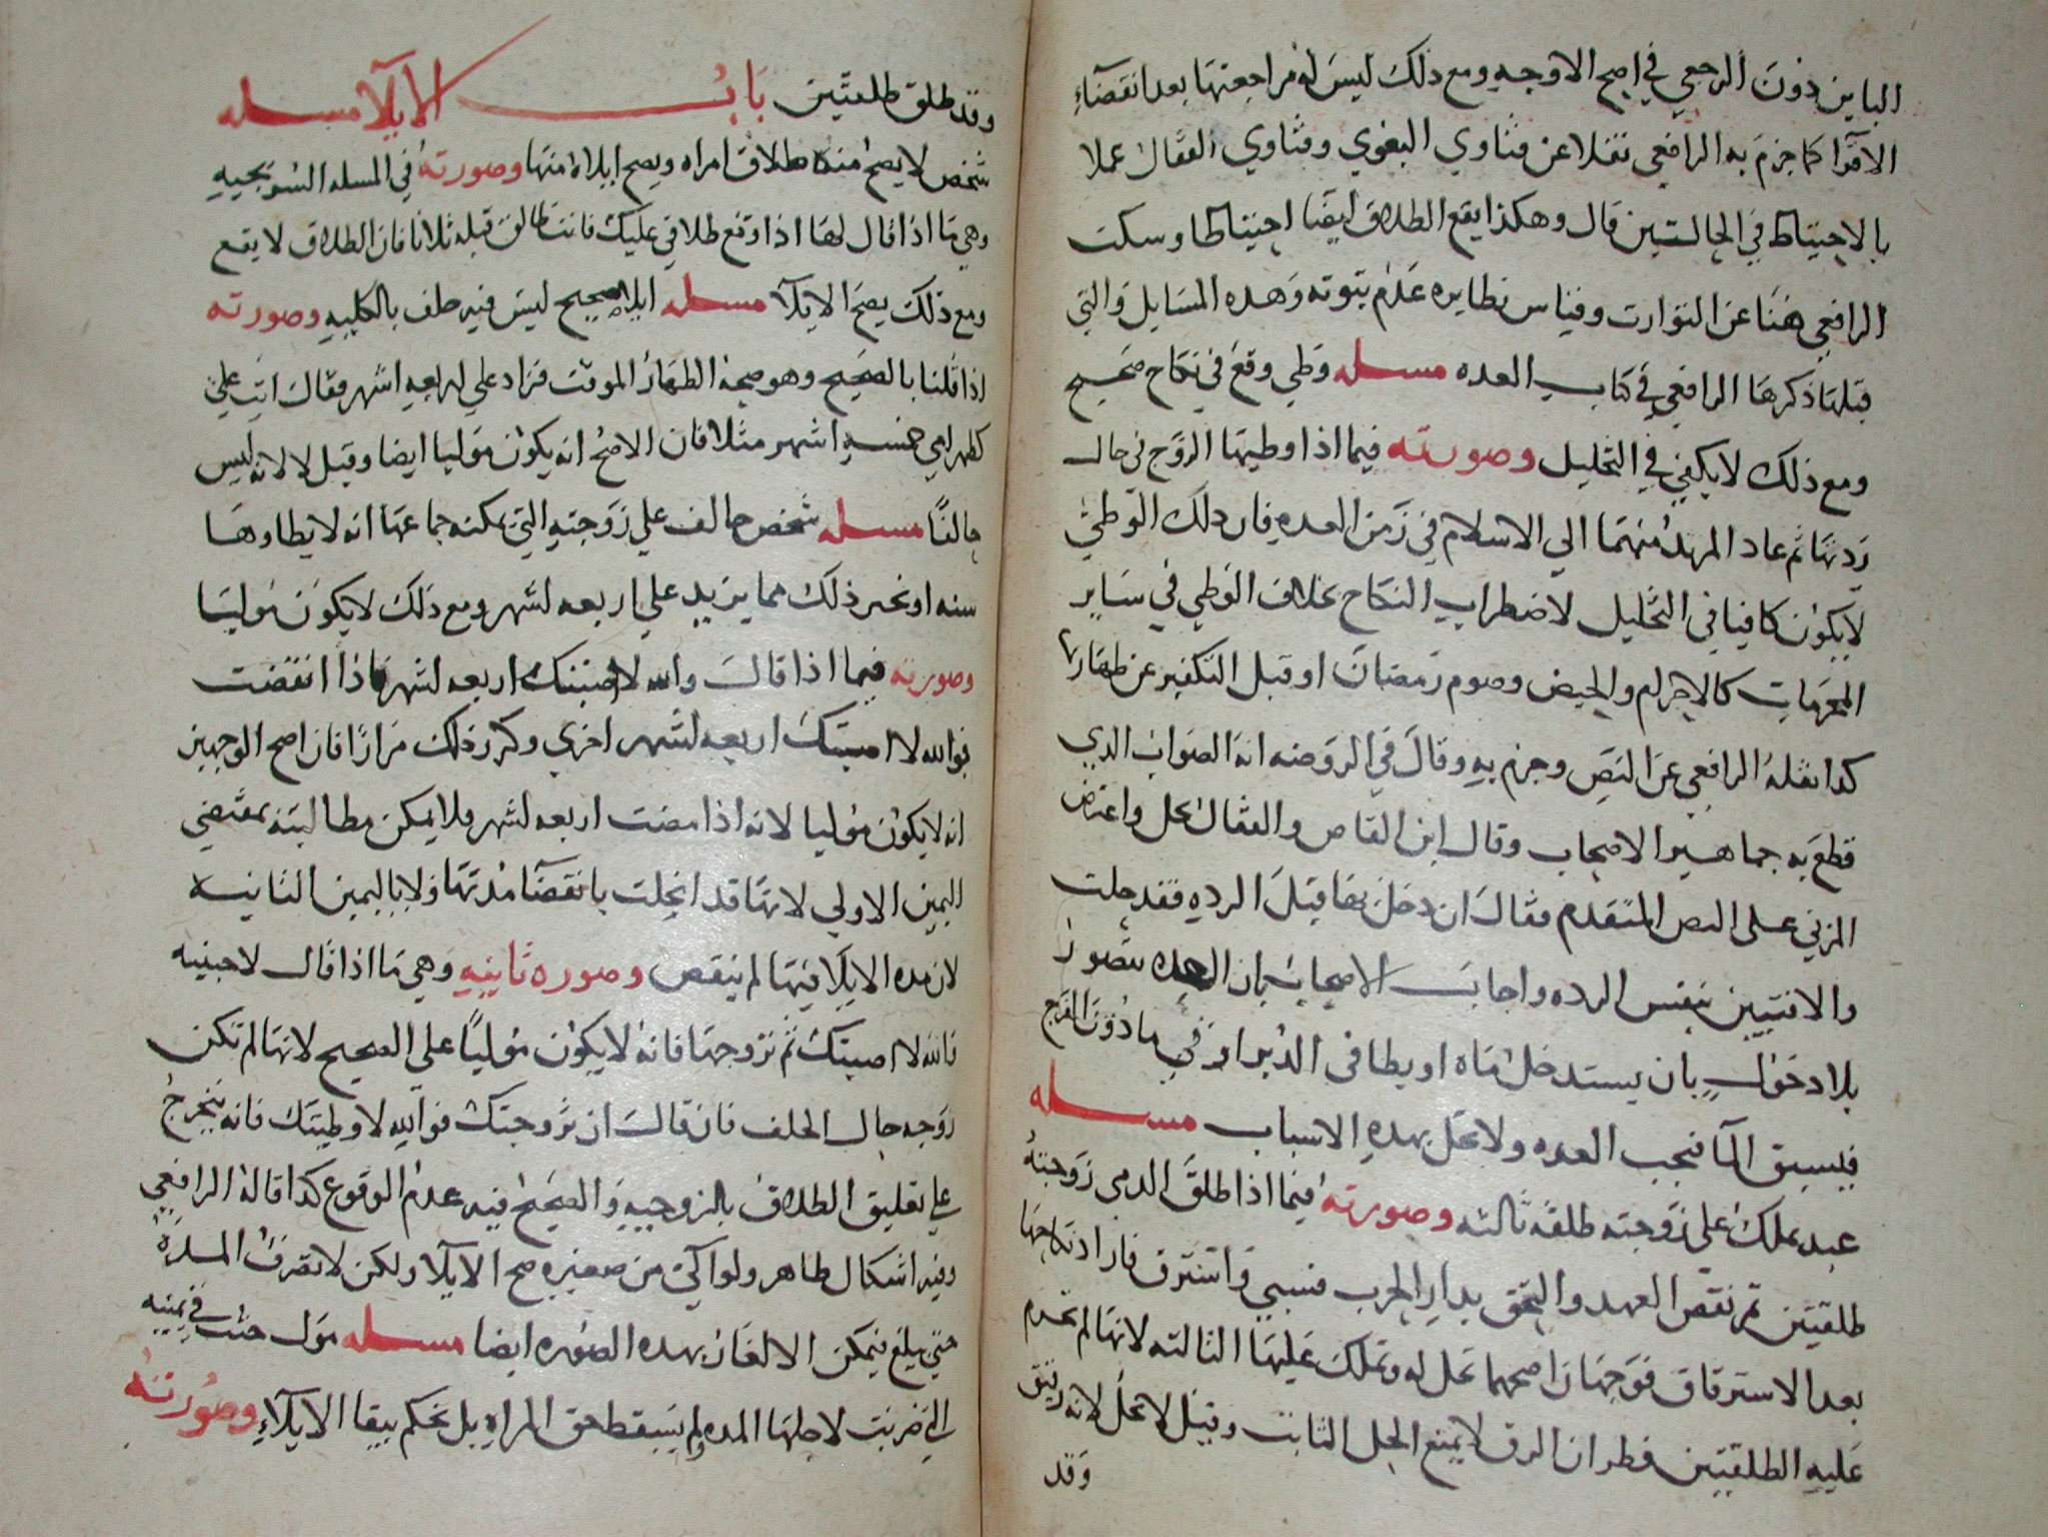 الباين دون الرجعي في اصح الاوجه ومع ذلك ليس له مراجعتها بعد انقضآء
الاقرا كما جزم به الرافعي نقلا عن فتاوي البغوي وفتاوي القفال عملا
بالاحتياط في الحالتين قال وهكذا يقع الطلاق ايضا احتياطا وسكت
الرافعي هنا عن التوارث وقياس نظايره عدم ثبوته وهذه المسايل والتي
قبلها ذكرها الرافعي في كتاب العده مسله وطي وقع في نكاح صحيح
ومع ذلك لا يكفي في التحليل وصورته فيما اذا وطيها الزوج في حال
ردتها ثم عاد المرتد منهما الي الاسلام في زمن العده فان ذلك الوطئ
لا يكون كافيا في التحليل لاضطراب النكاح بخلاف الوطي في ساير
المحرمات كالاحرام والحيض وصوم رمضان او قبل التكفير عن ظهارها
كدا نقله الرافعي عن النص وجزم به وقال في الروضه انه الصواب الدي
قطع به جماهير الاصحاب وقال ابن القاص والقفال يحل واعترض
المزني على النص المتقدم فقال ان دخل بها قبل الرده فقد حلت
والا فتبين بنفس الرده واجاب الاصحاب بان العده تتصور
بلا دخول بان يستدخل ماه او يطا في الدبر او في ما دون الفرج
فيسبق المآ فتجب العده ولا تحل بهده الاسباب مسله
عبد يملك علي زوجته طلقه ثالثه وصورته فيما اذا طلق الدمي زوجته
طلقتين ثم نقض العهد والتحق بدار الحرب فسبي واسترق فاراد نكاحها
بعد الاسترقاق فوجهان اصحهما تحل له وتملك عليها الثالثه لانها لم تحرم
عليه الطلقتين فطران الرق لا يمنع الحل الثابت وقيل لا تحل لانه رقيق
وقد
وقد طلق طلقتين باب الايلآ مسله
شخص لا يصح منه طلاق امراه ويصح ايلاه منها وصورته في المسله السريجيه
وهي ما اذا قال لها اذا وقع طلاقي عليك فانت طالق قبله ثلاثا فان الطلاق لا يقع
ومع ذلك يصح الايلآ مسله ايلا صحيح ليس فيه حلف بالكليه وصورته
اذا قلنا بالصحيح وهو صحة الظهار الموقت فزاد علي اربعه اشهر فقال انت علي
كظهر امي خمسه اشهر مثلا فان الاصح انه يكون موليا ايضا وقيل لا لانه ليس
حالفا مسله شخص حالف علي زوجته التي يمكنه جماعها انه لا يطاوها
سنه او نحو ذلك مما يزيد علي اربعه اشهر ومع ذلك لا يكون موليا
وصورته فيما اذا قال والله لا اصبتك اربعه اشهر فاذا انقضت
فوالله لا اصبتك اربعه اشهر اخري وكرر ذلك مرارا فان اصح الوجهين
انه لا يكون موليا لانه اذا مضت اربعه اشهر فلا يمكن مطالبته بمقتضي
اليمين الاولي لانها قد انحلت بانقضآ مدتها ولا باليمين الثانيه
لان مده الايلا فيها لم ينقص وصوره ثانيه وهي ما اذا قال لاجنبيه
فالله لا اصبتك ثم تزوجها فانه لا يكون موليا على الصحيح لانها لم تكن
زوجه حال الحلف فان قال ان تزوجتك فوالله لا وطيتك فانه يتخرج
علي تعليق الطلاق بالزوجيه والصحيح فيه عدم الوقوع كدا قاله الرافعي
وفيه اشكال ظاهر ولو آلي من صغيره صح الايلآ ولكن لا تضرب المده
حتي يبلغ فيمكن الالغاز بهده الصوره ايضا مسله مول حنث في يمينه
التي ضربت لاجلها المده ولم يسقط حق المراه بل نحكم ببقا الايلآء وصورته